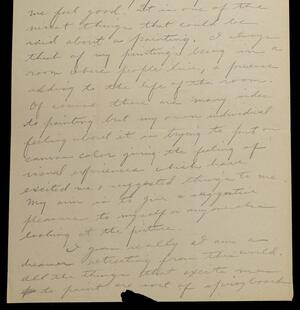 me feel good! It is one of the
nicest things that could be
said about a painting. I always
think of my paintings being in a
room where people live, a presence
adding to the life of the room.
Of course there are many sides
to painting but my own individual
feeling about it is trying to put on
canvas color giving the feeling of
visual experiences which have
excited me, suggested things to me.
My aim is to give a suggestive
pleasure to myself or anyone else
looking at the picture.
I guess really I am a
dreamer retreating from this world.
All the things that excite me
to paint are sort of a springboard